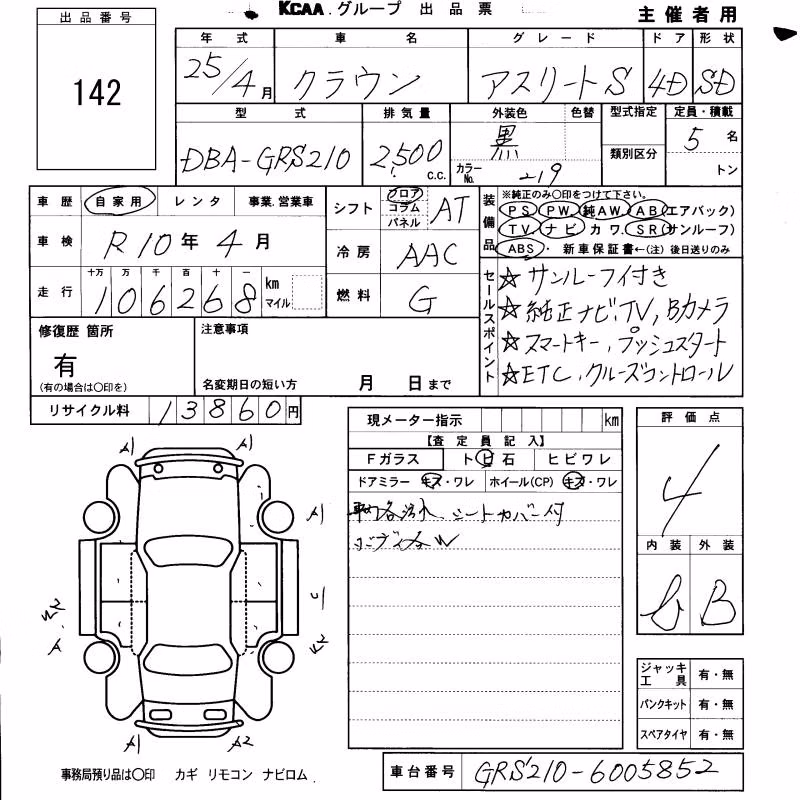 KCAA.グループ 出品票 主催者用
出品番号
142
年式 車名 グレード ドア 形状
25/4月 クラウン アスリートS 4D SD
型式 排気量 外装色 色替 型式指定 定員・積載
DBA-GRS210 2,500c.c. 黒 カラーNo. 219 類別区分 5名 トン
車歴 自家用 レンタ 事業.営業車
車検 R10年4月
走行 十万 万 千 百 十 一
106268 km マイル
シフト フロア コラム パネル AT
冷房 AAC
燃料 G
装備品
※純正のみ〇印をつけて下さい。
PS PW 純AW AB(エアバック)
TV ナビ カワ.SR(サンルーフ)
ABS・ 新車保証書←(注)後日送りのみ
セールスポイント
☆サンルーフ付き
☆純正ナビ,TV,Bカメラ
☆スマートキー,プッシュスタート
☆ETC,クルーズコントロール
修復歴 箇所
有
(有の場合は〇印を)
注意事項
名変期日の短い方 月 日まで
リサイクル料 13860円
現メーター指示 km
【査定員記入】
Fガラス トビ石 ヒビワレ
ドアミラー キズ・ワレ ホイール(CP) キズ・ワレ
シートカバー付
W
評価点
4
内装 外装
b B
A1 A1
A1
W2
A
W2
A1 A2
ジャッキ工具 有・無
パンクキット 有・無
スペアタイヤ 有・無
事務局預り品は〇印 カギ リモコン ナビロム.
車台番号 GRS210-6005852